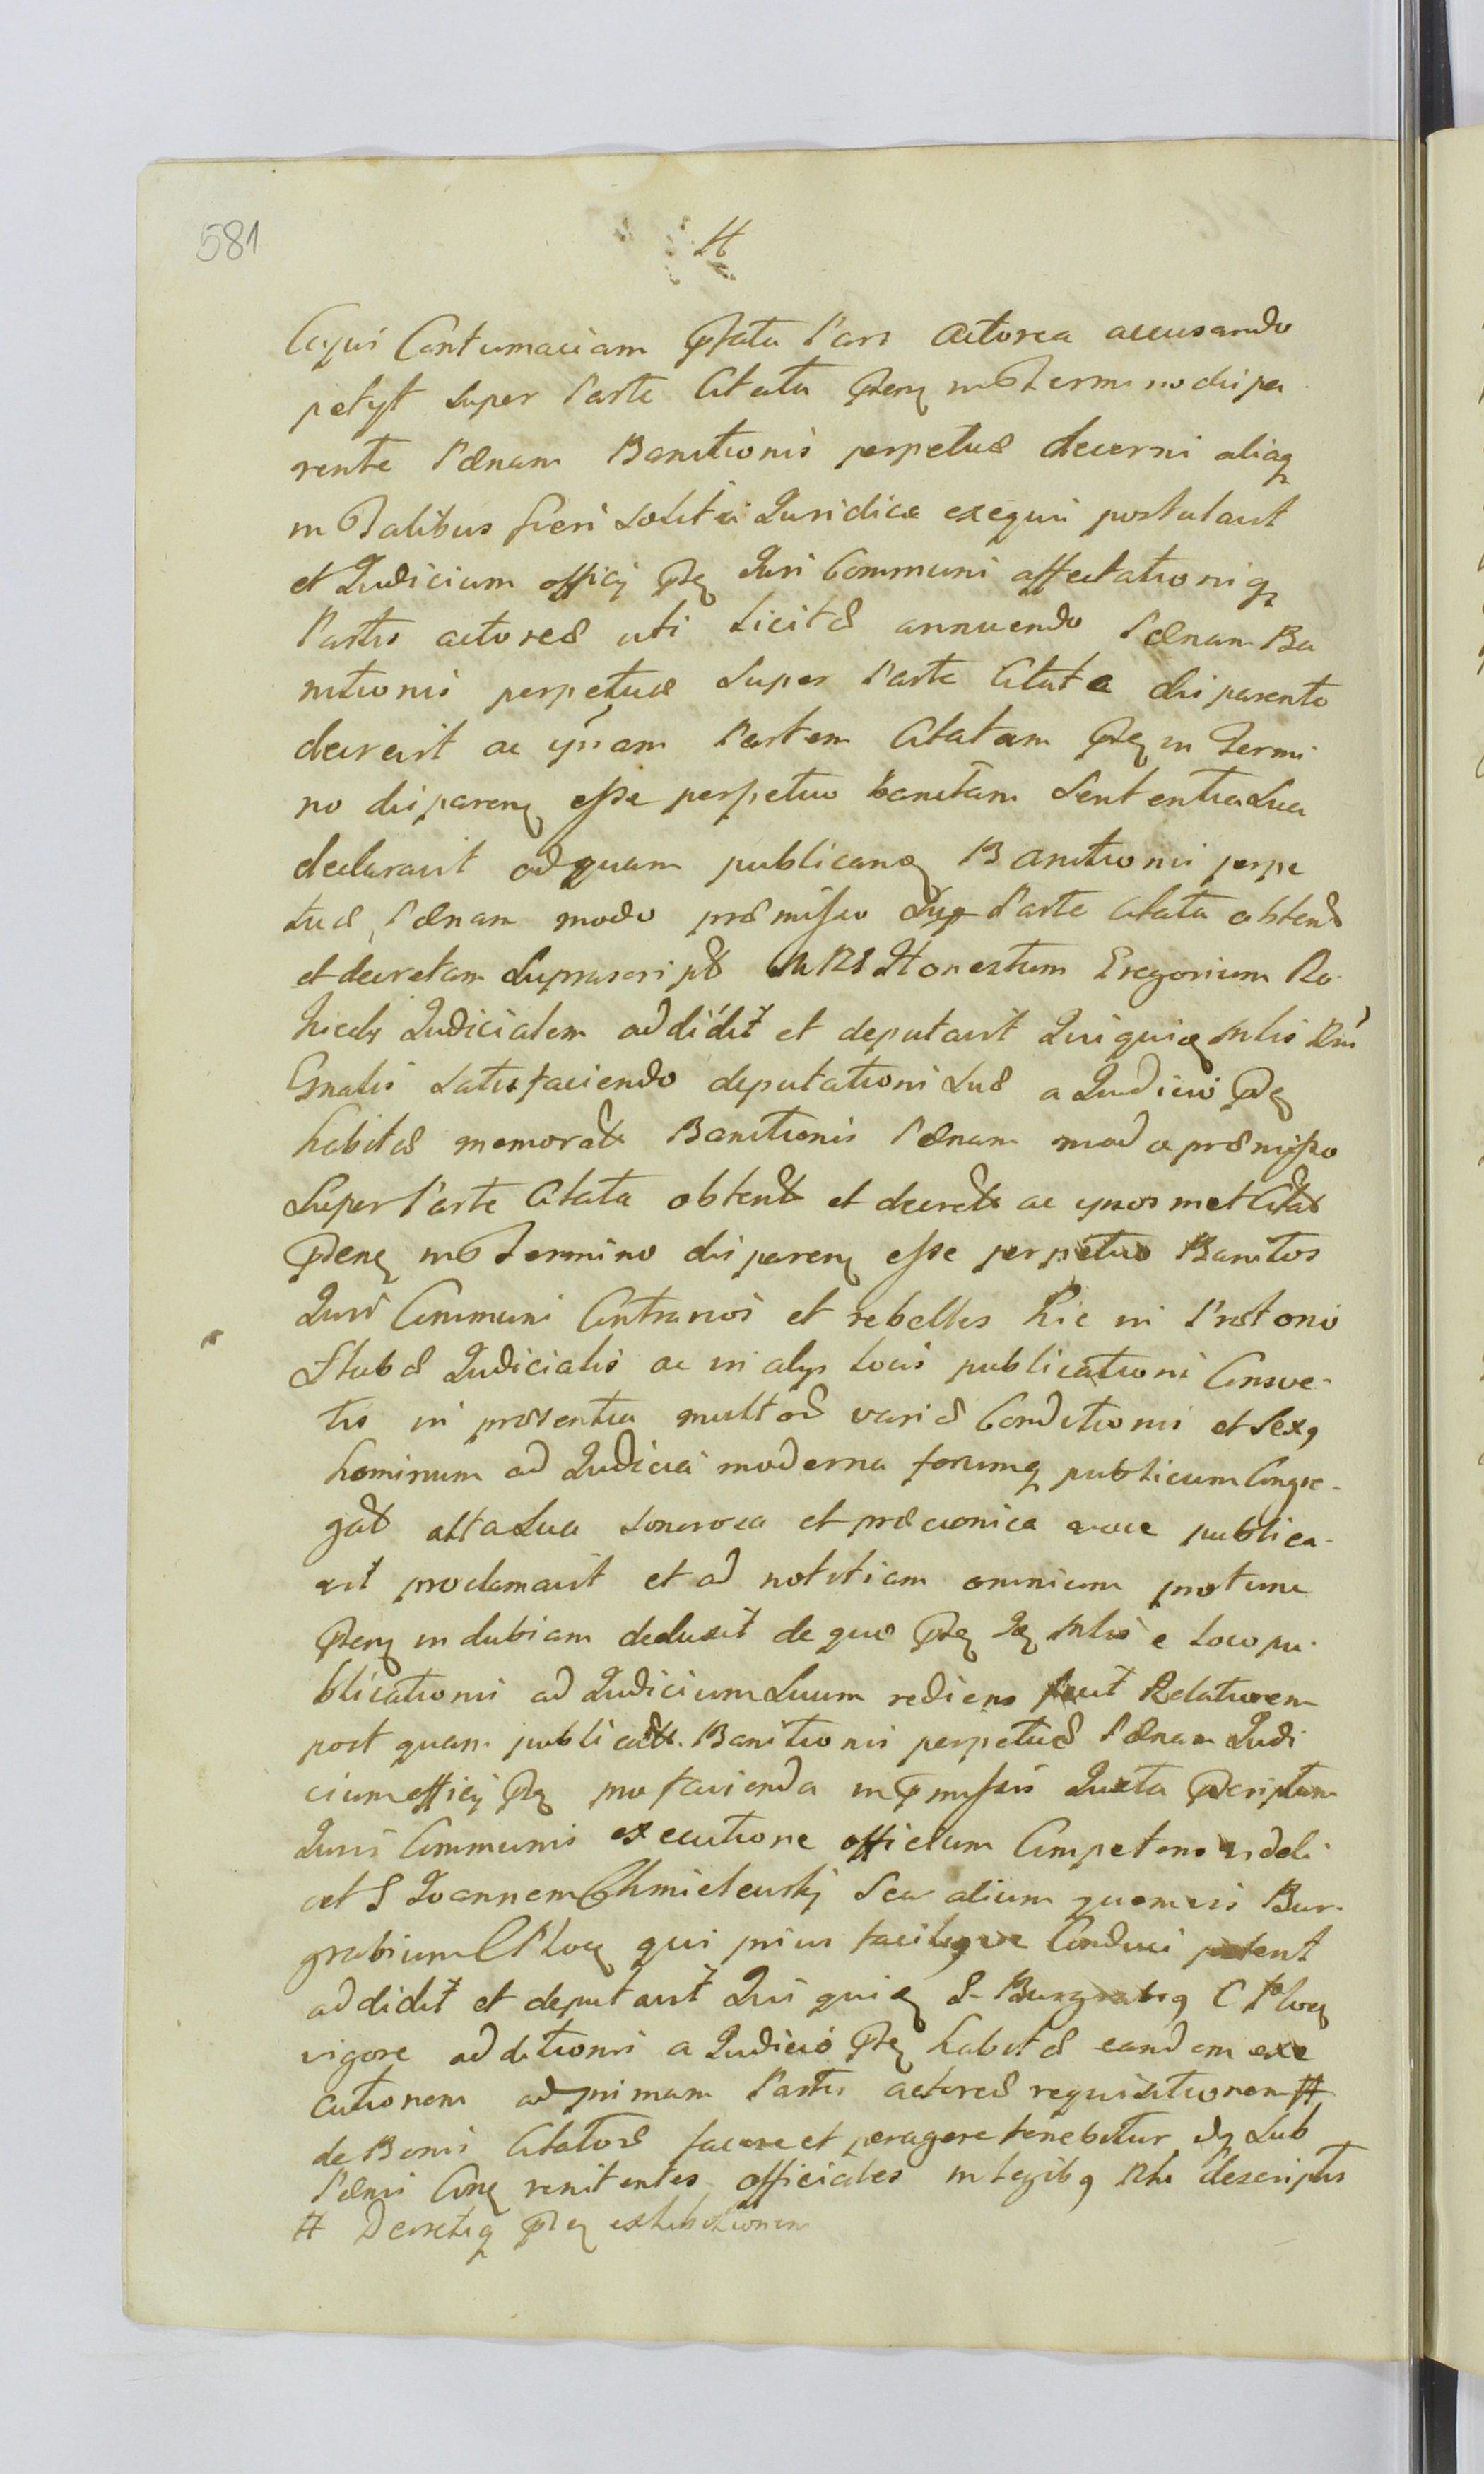 581
H
Cujus Contumaciam pfata Pars Actorea accusando
petyt super Parte Citata pten in Termino dispa
rente Pænam Banitionis perpetuæ decerni aliaq
in Talibus fieri solita Juridice exequi postulavit
et Judicium officij pte Juri Communi affectationiq
Partis actoreæ uti licitæ annuendo Pænam Ba
nitionis perpetuæ super Parte Citata disparente
decrevit ac ipsam Partem Citatam pte in Termi
no disparen esse perpetuo banitam Sententia Sua
declaravit ad quam publican Banitionis perpe
tuæ Pænam modo præmisso sup Parte Citata obten
et decretam suprascript Honestum Gregorium Ro
Judicialem addidit et deputavit Qui quiem Mlis Rni
Gnalis satisfaciendo deputationi suæ a Judicio pte
habitæ memorat Banitionis Pænam modo præmisso
super Parte Citata obtent et decret ac ipsosmet Citat
pten in Termino disparen esse perpetuo Banitos
Juri Communi Contrarios et rebelles hic in Prætorio
Stubæ Judicialis ac in alys locis publicationi Consve-
tis in præsentia multor variæ Conditionis et Sexq
hominum ad Judicia moderna forumq publicum Congre-
gat alta sua sonorosa et præconica voce publica-
vit proclamavit et ad notitiam omnium
pten indubiam deduxit de quo pte Mlis e loco pu-
blicationis ad Judicium Suum rediens fecit Relationem
post quam publicat. Banitionis perpetuæ Pænam Judi
cium officij pte pro facienda in pmissis Juxta pscriptum
Juris Communis executione officium Competens videli
cet G Joannem Chmielewskj Seu alium quemvis Bur-
grabium C Ploc qui prius faciliq ve Conduci poterit
addidit et deputavit Qui quiem G Burgrabiq C Ploc
vigore additionis a Judicio pte habitæ eandem exe
cutionem ad primam Partis actoreæ requisitionem #
de Bonis Citator facere et peragere tenebitur id sub
Pænis Con renitentes officiales in legibq Rni descriptis
# Decretiq pte exhibitionem